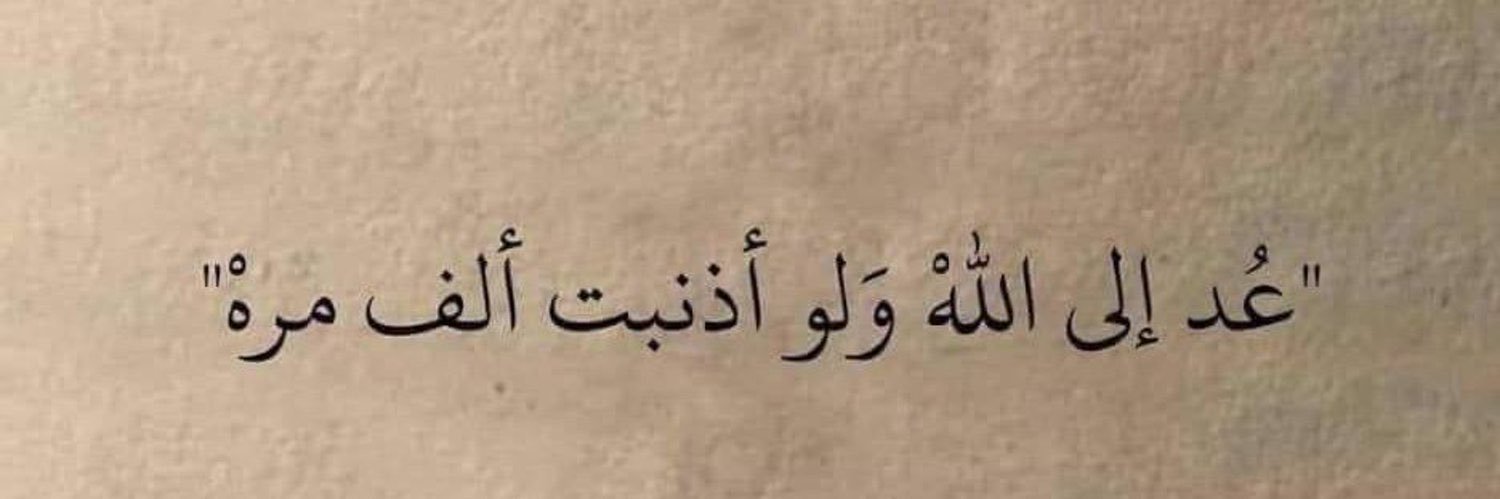 "عُد إلى اللهْ وَلو أذنبت ألف مرهْ"